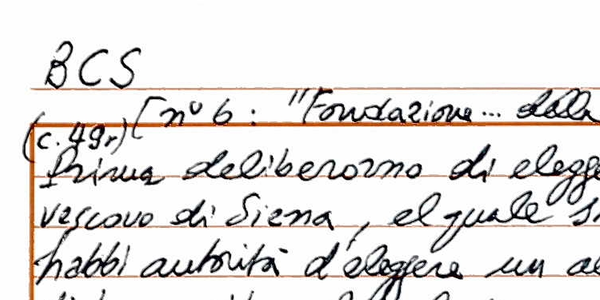 BCS
[nº 6: "Fondazione... della
(c. 49r)
Prima deliberorno di elegge
vescovo di Siena, el quale s
habbi autorità d'elegere un a